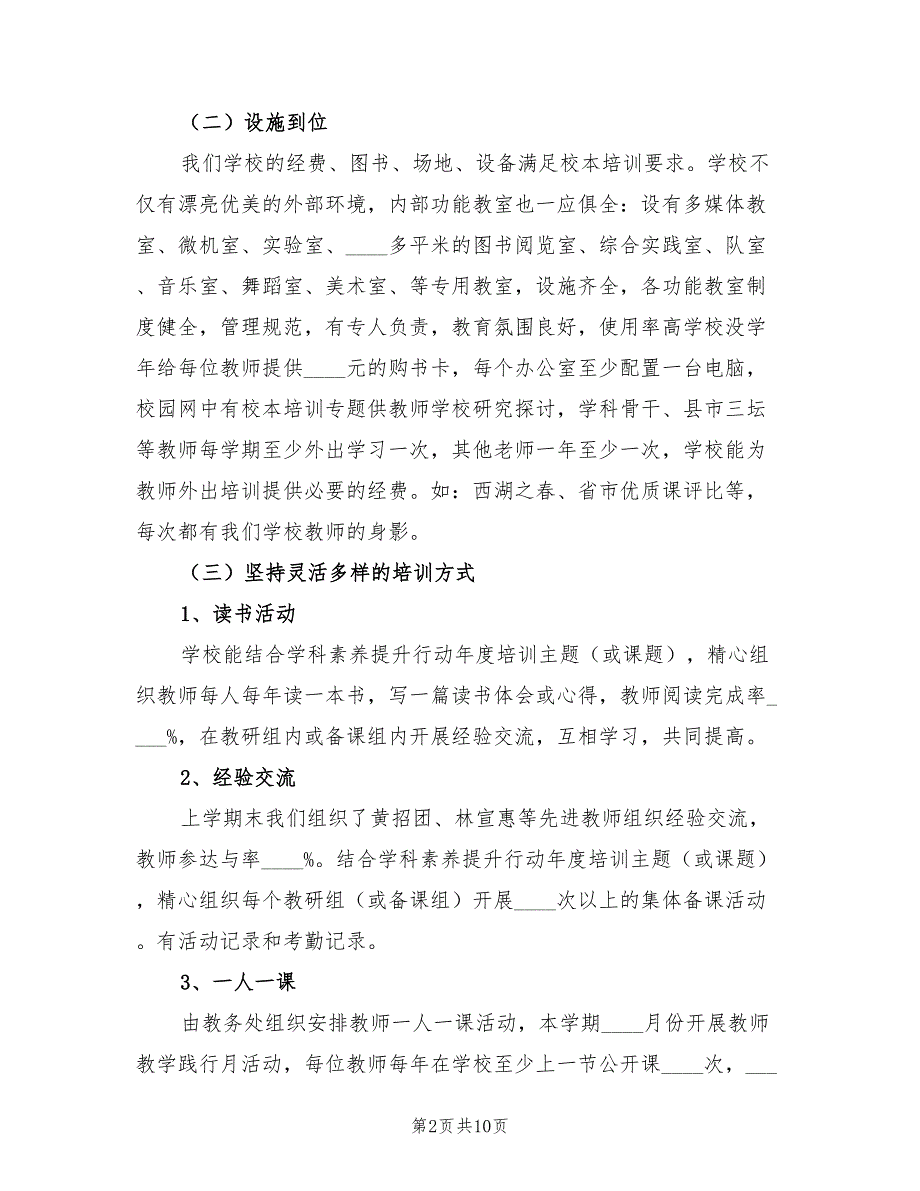 （二）设施到位
我们学校的经费、图书、场地、设备满足校本培训要求。学校不
仅有漂亮优美的外部环境，内部功能教室也一应俱全：设有多媒体教
室、微机室、实验室、____多平米的图书阅览室、综合实践室、队室
、音乐室、舞蹈室、美术室、等专用教室，设施齐全，各功能教室制
度健全，管理规范，有专人负责，教育氛围良好，使用率高学校没学
年给每位教师提供____元的购书卡，每个办公室至少配置一台电脑，
校园网中有校本培训专题供教师学校研究探讨，学科骨干、县市三坛
等教师每学期至少外出学习一次，其他老师一年至少一次，学校能为
教师外出培训提供必要的经费。如：西湖之春、省市优质课评比等，
每次都有我们学校教师的身影。
（三）坚持灵活多样的培训方式
1、读书活动
学校能结合学科素养提升行动年度培训主题（或课题），精心组
织教师每人每年读一本书，写一篇读书体会或心得，教师阅读完成率_
___%，在教研组内或备课组内开展经验交流，互相学习，共同提高。
2、经验交流
上学期末我们组织了黄招团、林宣惠等先进教师组织经验交流，
教师参达与率____%。结合学科素养提升行动年度培训主题（或课题）
，精心组织每个教研组（或备课组）开展____次以上的集体备课活动
。有活动记录和考勤记录。
3、一人一课
由教务处组织安排教师一人一课活动，本学期____月份开展教师
教学践行月活动，每位教师每年在学校至少上一节公开课____次，___
第2页共10页